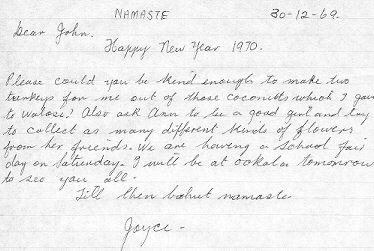 NAMASTE 30-12-69.
Dear John.
Happy New Year 1970.
Please could you be kind enough to make two
turkeys for me out of those coconuts which I gave
to Watosi? Also ask Ann to be a good girl and try
to collect as many different kinds of flowers
from her friends. We are having a School fair
day on Saturday. I will be at tomorrow
to see you all.
Till then bahut namaste
Joyce -